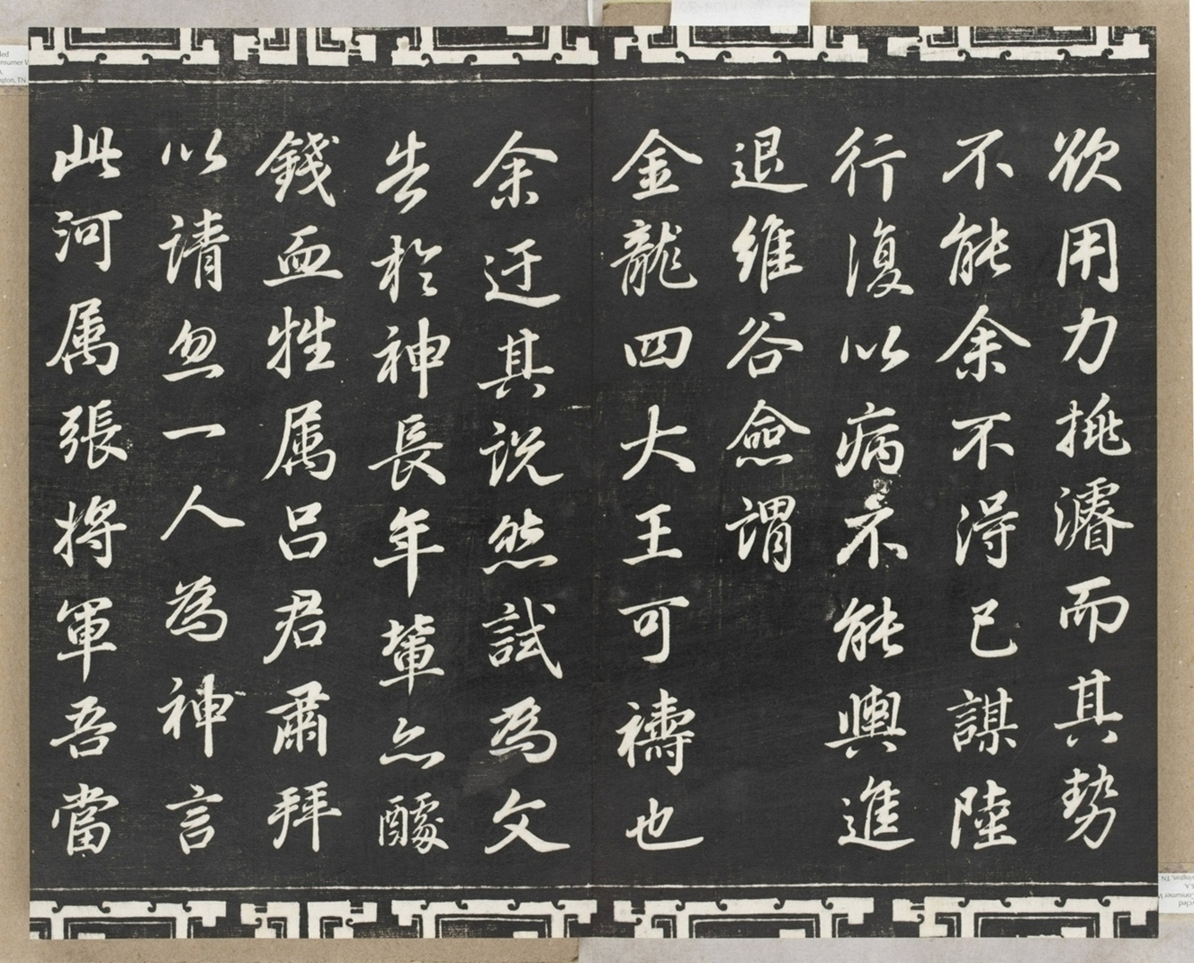 欲用力挑濬而其勢
不能余不得已謀陸
行復以病不能輿進
退維谷僉謂
金龍四大王可禱也
余迂其説然試為文
告於神長年輩亦醵
錢血牲属呂君肅拜
以請忽一人為神言
此河属張將軍吾當